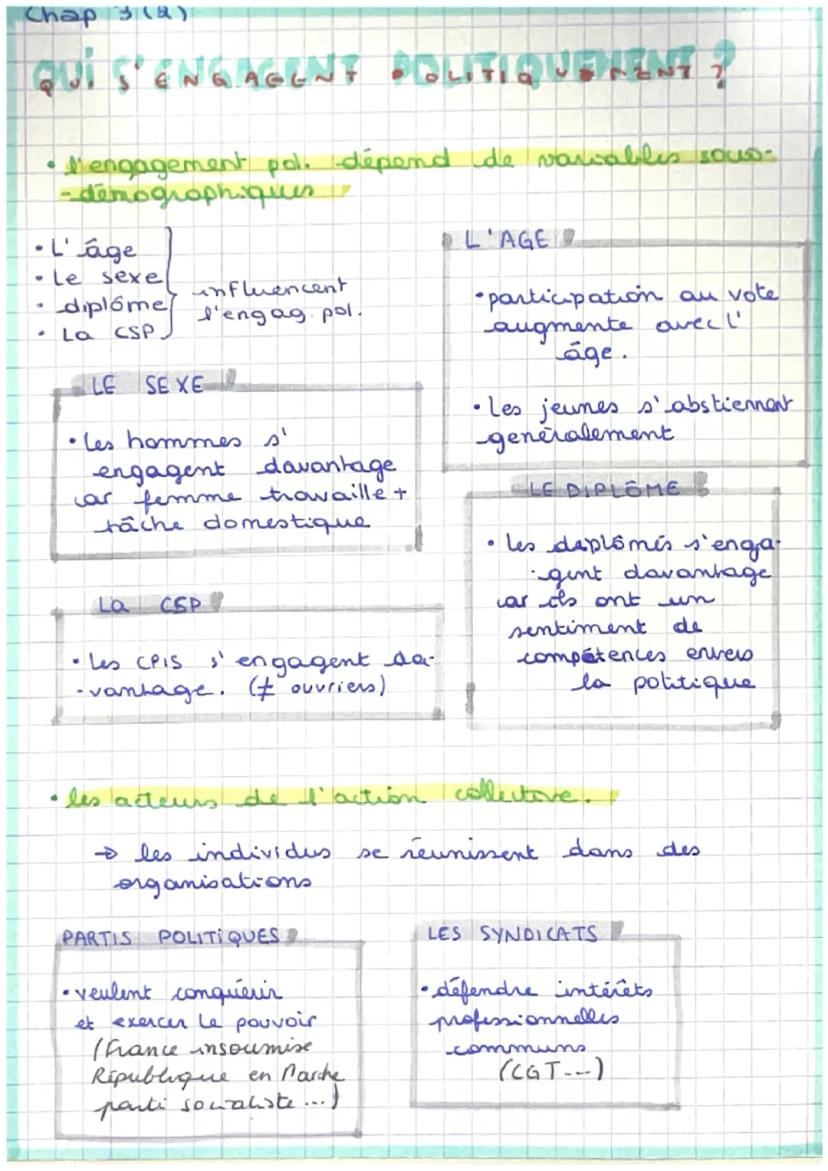 Chap 3 (2)
QUI S'ENGAGENT POLITIQUEMENT ?
• l'engagement pol. dépend de variables socio-
-démographiques
• L' âge
• Le sexe
• diplôme
• La CSP
influencent
l'engag. pol.
L'AGE
• participation au vote
augmente avec l'
âge.
• Les jeunes s'abstiennent
généralement
LE SEXE
• Les hommes s'
engagent davantage
car femme travaille +
tâche domestique
LE DIPLÔME
• Les diplômés s'enga-
-gent davantage
car ils ont un
sentiment de
compétences envers
la politique
La CSP
• Les CPIS s'engagent da-
-vantage. (≠ ouvriers)
• les acteurs de l'action collective.
→ les individus se réunissent dans des
organisations
PARTIS POLITIQUES
• veulent conquérir
et exercer le pouvoir
(France insoumise
République en Marche
parti socialiste ...)
LES SYNDICATS
• défendre intérêts
professionnelles
communs
(CGT ---)